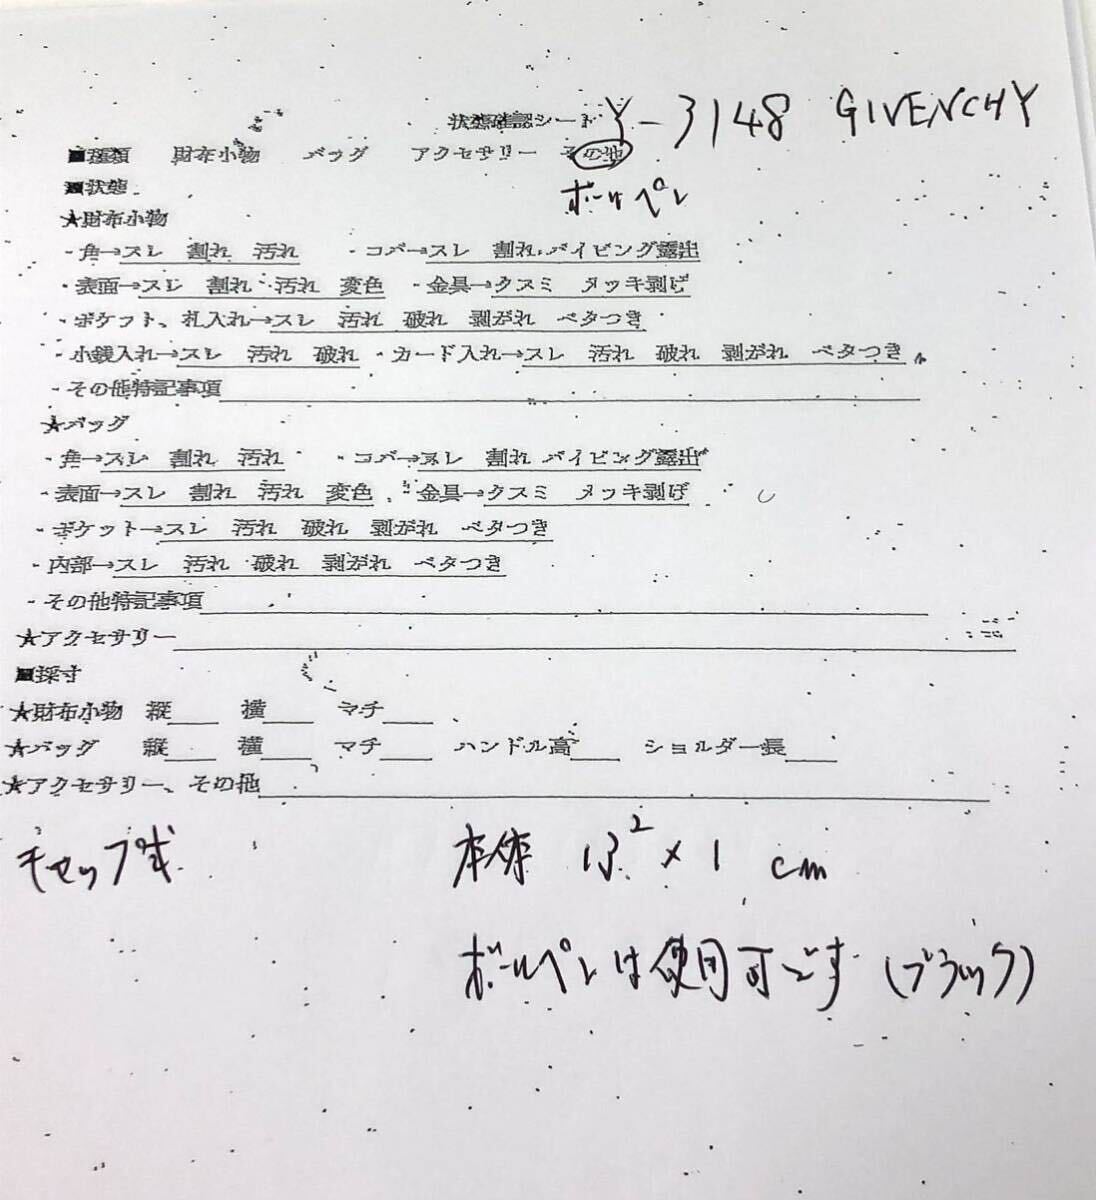 状態確認シート Y-3148 GIVENCHY
■種類 財布小物 バッグ アクセサリー その他
■状態 ボールペン
★財布小物
・角→スレ 割れ 汚れ ・コバ→スレ 割れ パイピング露出
・表面→スレ 割れ 汚れ 変色 ・金具→クスミ メッキ剥げ
・ポケット、札入れ→スレ 汚れ 破れ 剥がれ ベタつき
・小銭入れ→スレ 汚れ 破れ ・カード入れ→スレ 汚れ 破れ 剥がれ ベタつき
・その他特記事項
★バッグ
・角→スレ 割れ 汚れ ・コバ→スレ 割れ パイピング露出
・表面→スレ 割れ 汚れ 変色 ・金具→クスミ メッキ剥げ
・ポケット→スレ 汚れ 破れ 剥がれ ベタつき
・内部→スレ 汚れ 破れ 剥がれ ベタつき
・その他特記事項
★アクセサリー
■採寸
★財布小物 縦 横 マチ
★バッグ 縦 横 マチ ハンドル高 ショルダー長
★アクセサリー、その他
キャップ式 本体 13.2 × 1 cm
ボールペンは使用可です (ブラック)